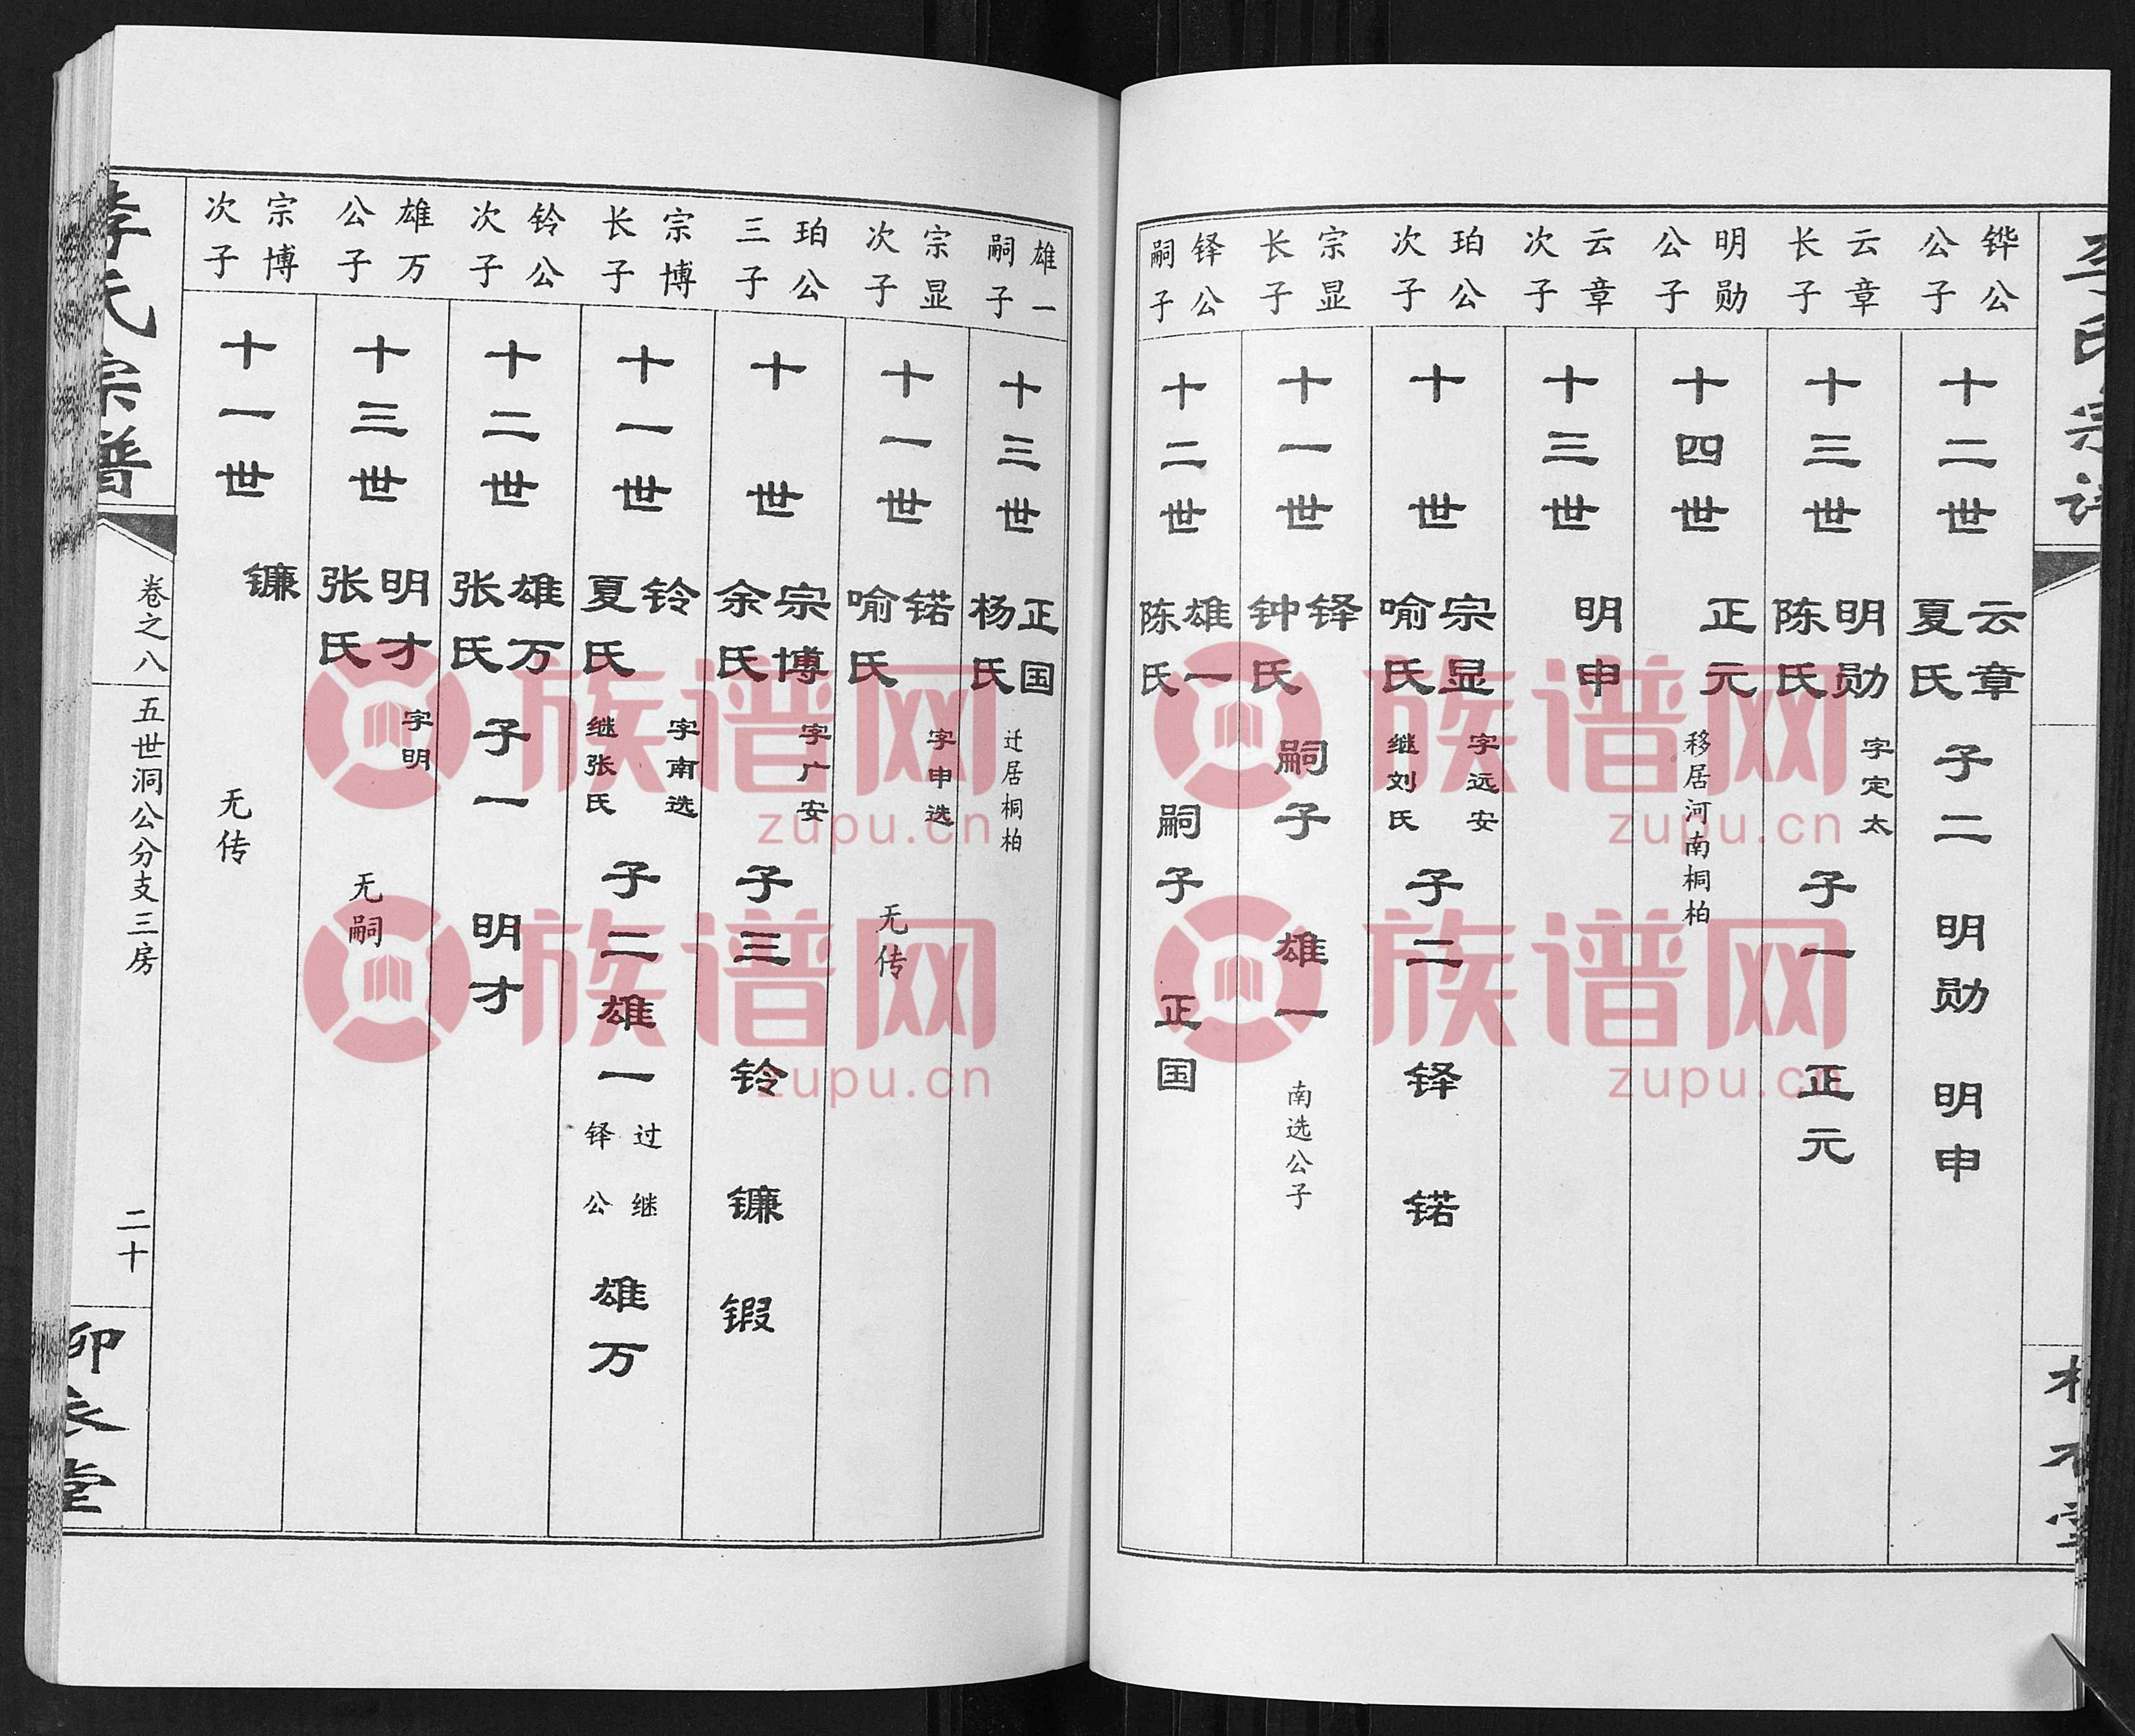 铧公
公子
十二世
云章
夏氏
子二 明勋 明申
云章
长子
十三世
明勋 字定太
陈氏
子一 正元
明勋
公子
十四世
正元
移居河南桐柏
云章
次子
十三世
明申
珀公
次子
十世
宗显 字远安
喻氏 继刘氏
子二 铎 锘
宗显
长子
十一世
铎
钟氏
嗣子 雄一 南选公子
铎公
嗣子
十二世
雄一
陈氏
嗣子 正国
雄一
嗣子
十三世
正国
杨氏
迁居桐柏
宗显
次子
十一世
锘 字申选
喻氏
无传
珀公
三子
十世
宗博 字广安
余氏
子三 铃 镰 锻
宗博
长子
十一世
铃 字南选
夏氏 继张氏
子二 雄一 过继铎公 雄万
铃公
次子
十二世
雄万
张氏
子一 明才
雄万
公子
十三世
明才 字明
张氏
无嗣
宗博
次子
十一世
镰
无传
李氏宗谱
卷之八
五世洞公分支三房
二十
族谱网
zupu.cn
族谱网
zupu.cn
族谱网
zupu.cn
族谱网
zupu.cn